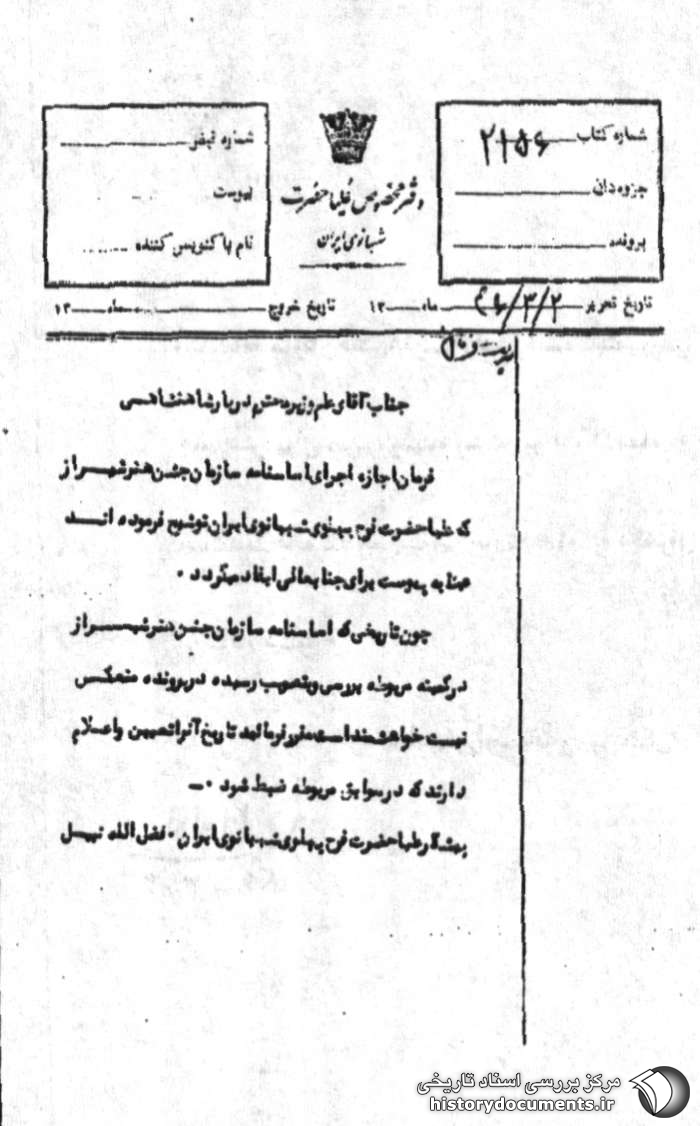 شماره کتاب ۲۱۵۶
جزوه‌دان
پرونده
دفتر مخصوص علیا حضرت
شهبانوی ایران
شماره قبض
پیوست
نام پاکنویس کننده
تاریخ تحریر ۴۶/۳/۲ ماه ۱۳
تاریخ خروج ماه ۱۳
جناب آقای علم وزیر محترم دربار شاهنشاهی
فرمان اجازه اجرای اساسنامه سازمان جشن هنر شیراز
که علیا حضرت فرح پهلوی شهبانوی ایران توشیح فرموده اند
عینا به پیوست برای جنابعالی ایفاد میگردد .
چون تاریخی که اساسنامه سازمان جشن هنر شیراز
در کمیته مربوطه بررسی و بتصویب رسیده در پرونده منعکس
نیست خواهشمند است مقرر فرمائید تاریخ آنرا تعیین و اعلام
دارند که در سوابق مربوطه ضبط شود .ـ
پیشکار علیا حضرت فرح پهلوی شهبانوی ایران . فضل الله نبیل
مرکز بررسی اسناد تاریخی
historydocuments.ir